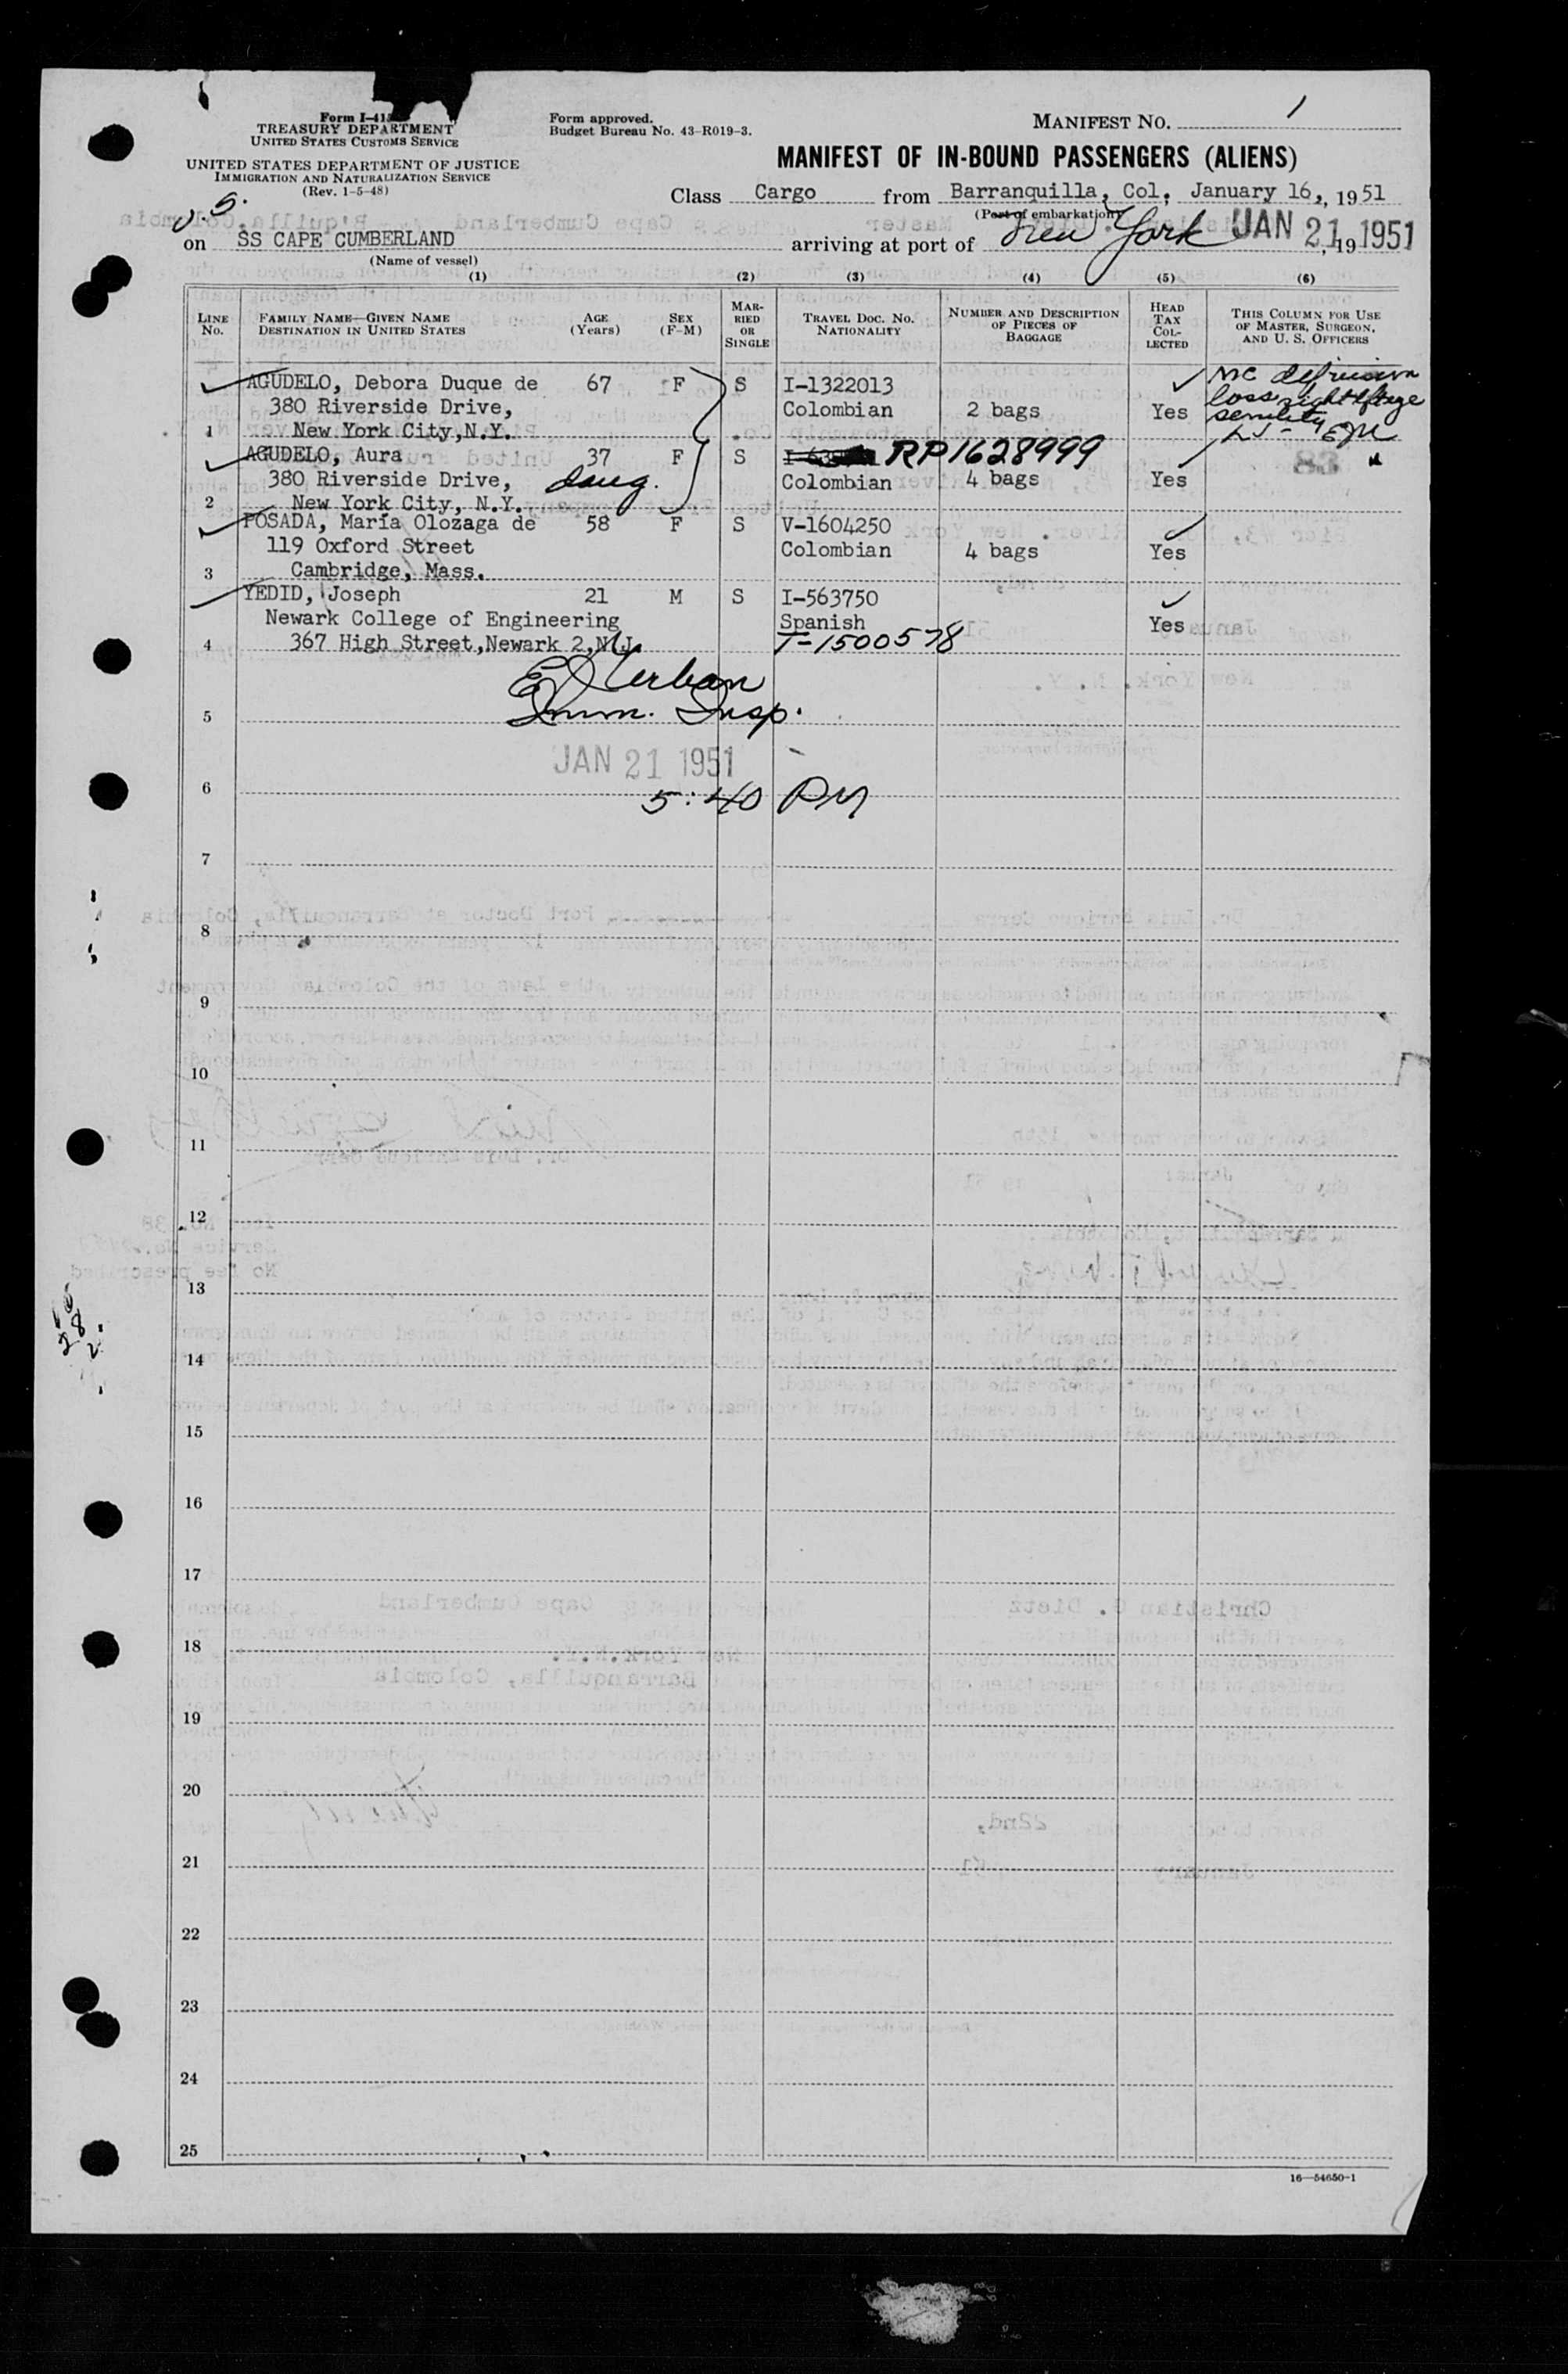 Form I-415
TREASURY DEPARTMENT
UNITED STATES CUSTOMS SERVICE
UNITED STATES DEPARTMENT OF JUSTICE
IMMIGRATION AND NATURALIZATION SERVICE
(Rev. 1-5-48)
Form approved.
Budget Bureau No. 43-R019-3.
MANIFEST NO. 1
MANIFEST OF IN-BOUND PASSENGERS (ALIENS)
Class Cargo from Barranquilla, Col, January 16, 1951
(Port of embarkation)
on SS CAPE CUMBERLAND arriving at port of New York JAN 21 1951, 19
(Name of vessel)
(1) (2) (3) (4) (5) (6)
LINE No. FAMILY NAME—GIVEN NAME DESTINATION IN UNITED STATES AGE (Years) SEX (F-M) MARRIED OR SINGLE TRAVEL DOC. NO. NATIONALITY NUMBER AND DESCRIPTION OF PIECES OF BAGGAGE HEAD TAX COLLECTED THIS COLUMN FOR USE OF MASTER, SURGEON, AND U. S. OFFICERS
AGUDELO, Debora Duque de 67 F S I-1322013
380 Riverside Drive, Colombian 2 bags Yes
1 New York City,N.Y.
senility
AGUDELO, Aura 37 F S RP1628999
380 Riverside Drive, daug. Colombian 4 bags Yes
83
2 New York City, N.Y.
POSADA, María Olozaga de 58 F S V-1604250
119 Oxford Street Colombian 4 bags Yes
3 Cambridge, Mass.
YEDID, Joseph 21 M S I-563750
Newark College of Engineering Spanish Yes
4 367 High Street,Newark 2,N.J. T-1500578
Imm. Insp.
5
JAN 21 1951
6
5:40 PM
7
8
9
10
11
12
13
14
15
16
17
18
19
20
21
22
23
24
25
16—54650-1